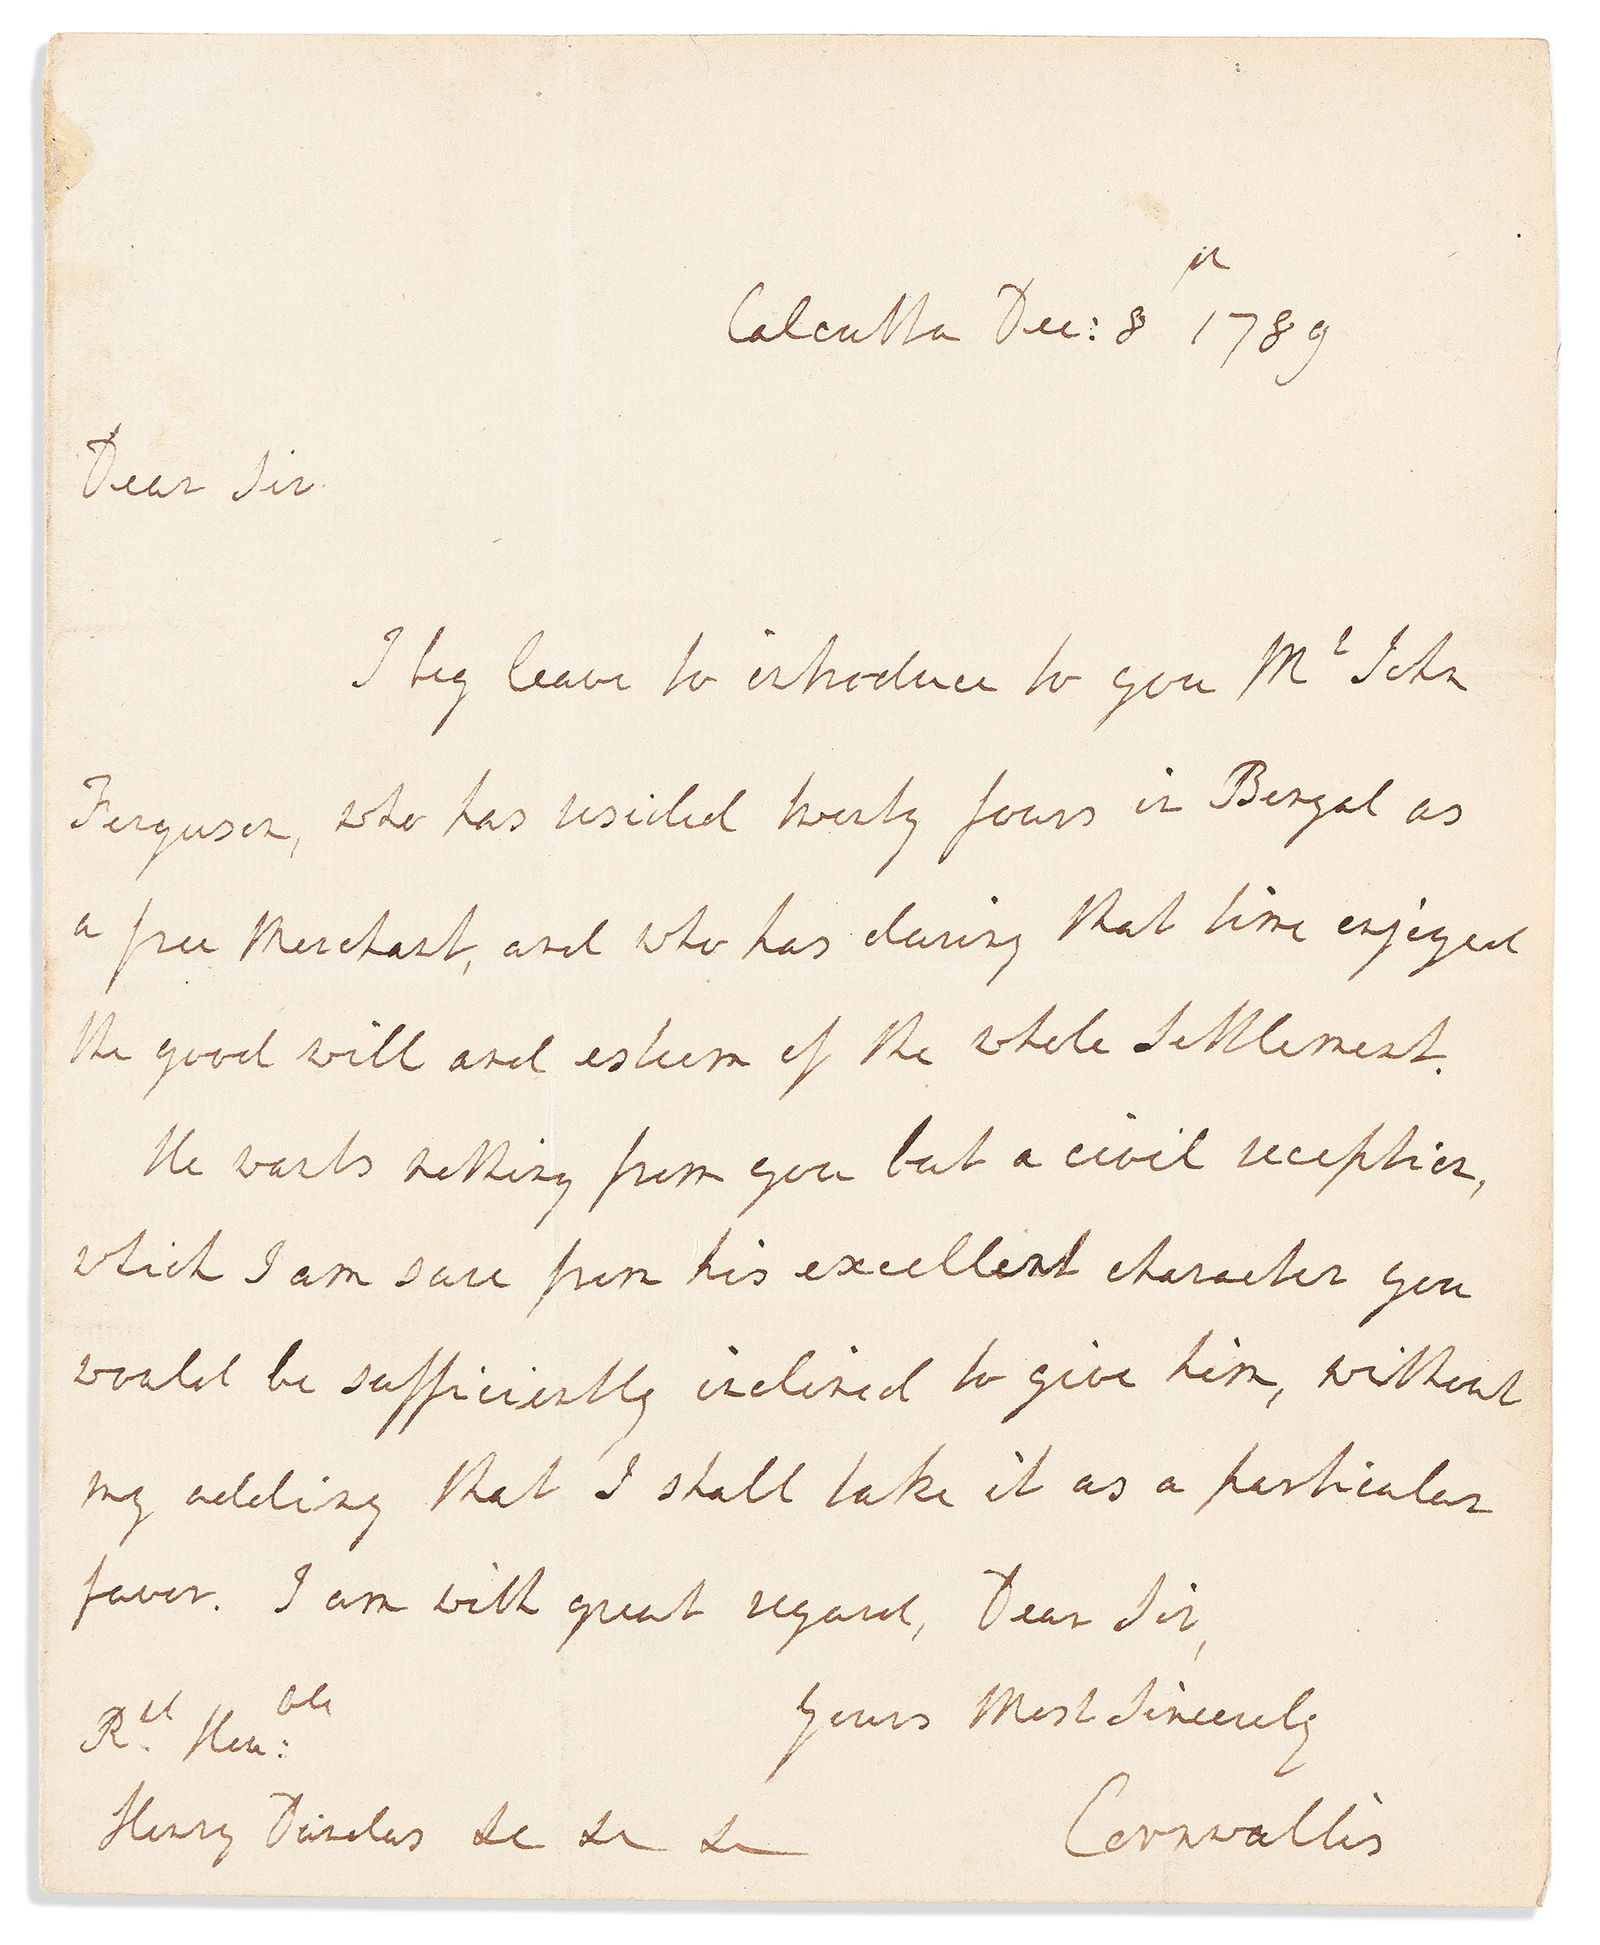 Calcutta Dec: 8th 1789
Dear Sir
I beg leave to introduce to you Mr John
Ferguson, who has resided twenty years in Bengal as
a free Merchant, and who has during that time enjoyed
the good will and esteem of the whole Settlement.
He wants nothing from you but a civil reception,
which I am sure from his excellent character you
would be sufficiently inclined to give him, without
my adding that I shall take it as a particular
favor. I am with great regard, Dear Sir,
Yours Most Sincerely
Rt. Hon:ble
Henry Dundas &c &c &c
Cornwallis